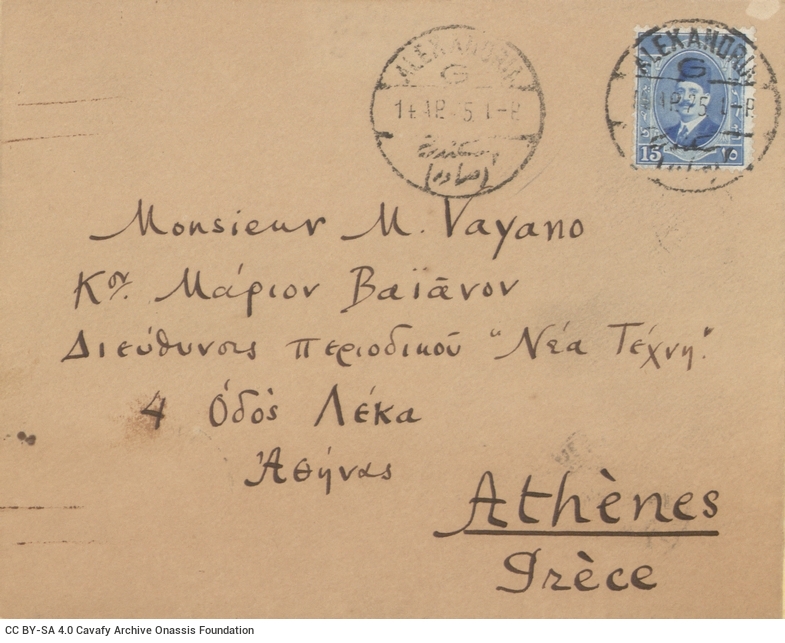 ALEXANDRIA
G
ALEXANDRIA
G
15 ١٥
Monsieur M. Vayano
Κον. Μάριον Βαϊᾶνον
Διεύθυνσις περιοδικοῦ "Νέα Τέχνη".
4 Ὁδὸς Λέκα
Ἀθήνας
Athènes
Grèce
CC BY-SA 4.0 Cavafy Archive Onassis Foundation